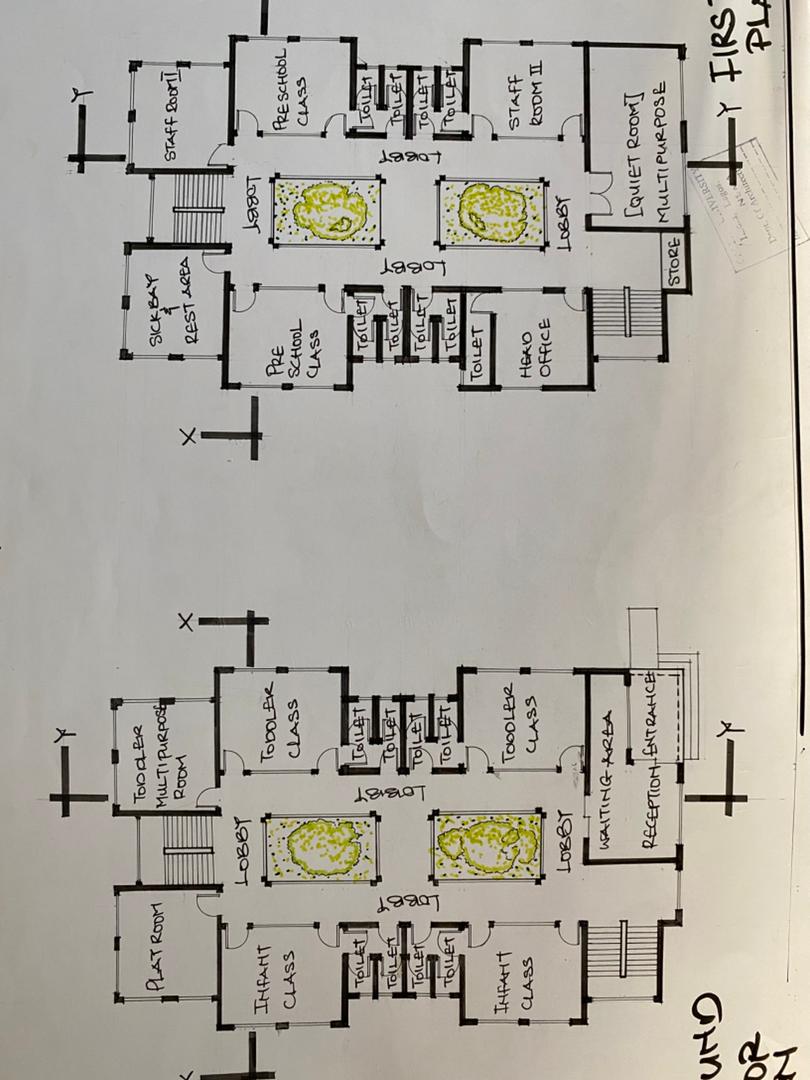 FIRST
PLA
Y
Y
STAFF ROOM I
PRESCHOOL
CLASS
TOILET
TOILET
TOILET
TOILET
STAFF
ROOM II
[QUIET ROOM]
MULTIPURPOSE
LOBBY
LOBBY
LOBBY
LOBBY
SICK BAY
&
REST AREA
PRE
SCHOOL
CLASS
TOILET
TOILET
TOILET
TOILET
TOILET
HEAD
OFFICE
STORE
X
X
Y
Y
TODDLER
MULTIPURPOSE
ROOM
TODDLER
CLASS
TOILET
TOILET
TOILET
TOILET
TODDLER
CLASS
WAITING AREA
RECEPTION
ENTRANCE
LOBBY
LOBBY
LOBBY
LOBBY
PLAY ROOM
INFANT
CLASS
TOILET
TOILET
TOILET
TOILET
INFANT
CLASS
X
UND
OR
N